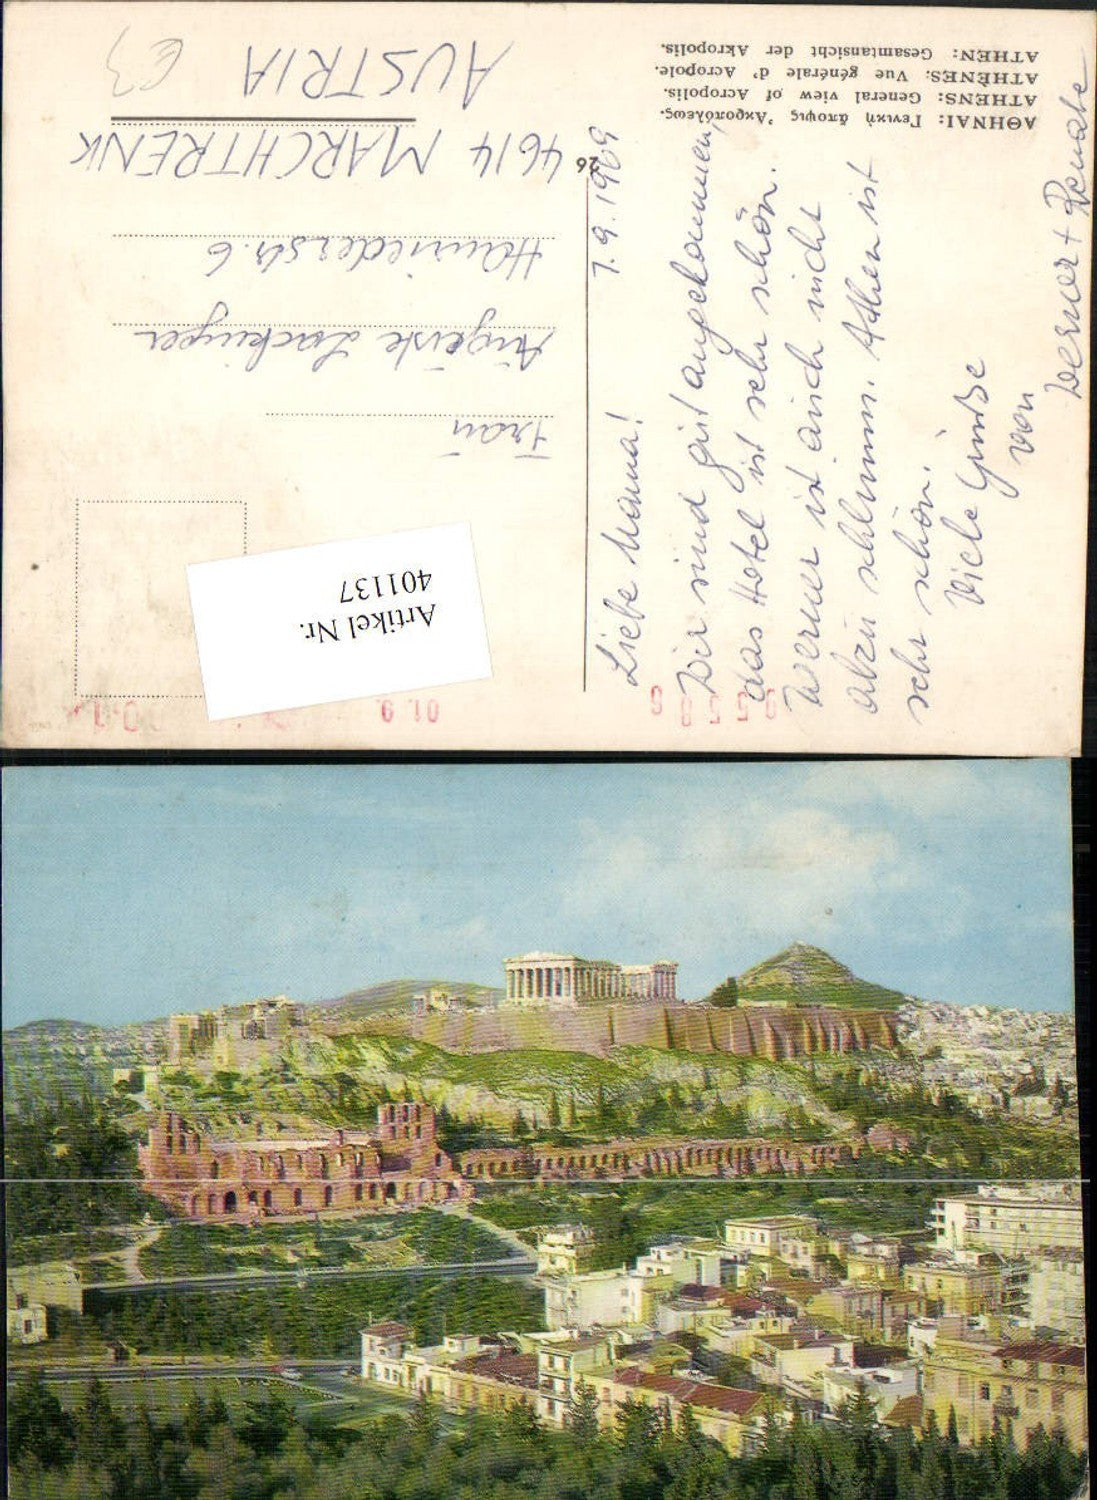 ΑΘΗΝΑΙ: Γενική ἄποψις Ἀκροπόλεως.
ATHENS: General view of Acropolis.
ATHÈNES: Vue générale d' Acropole.
ATHEN: Gesamtansicht der Akropolis.
26
7.9.1969
Liebe Mama!
Wir sind gut angekommen,
das Hotel ist sehr schön.
Werner ist auch nicht
allzu schlimm. Athen ist
sehr schön.
Viele Grüße
von
Werner + Renate
Artikel Nr.
401137
Frau
Lackinger
4614 MARCHTRENK
AUSTRIA
€3
01.9